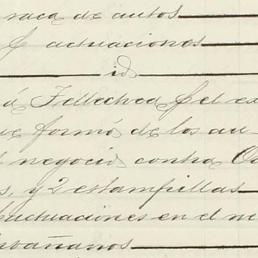 raca de autos
y actuaciones
id
á Fellechea p el ex
ue formó de los au
l negocio contra
s, y 2 estampillas
actuaciones en el n